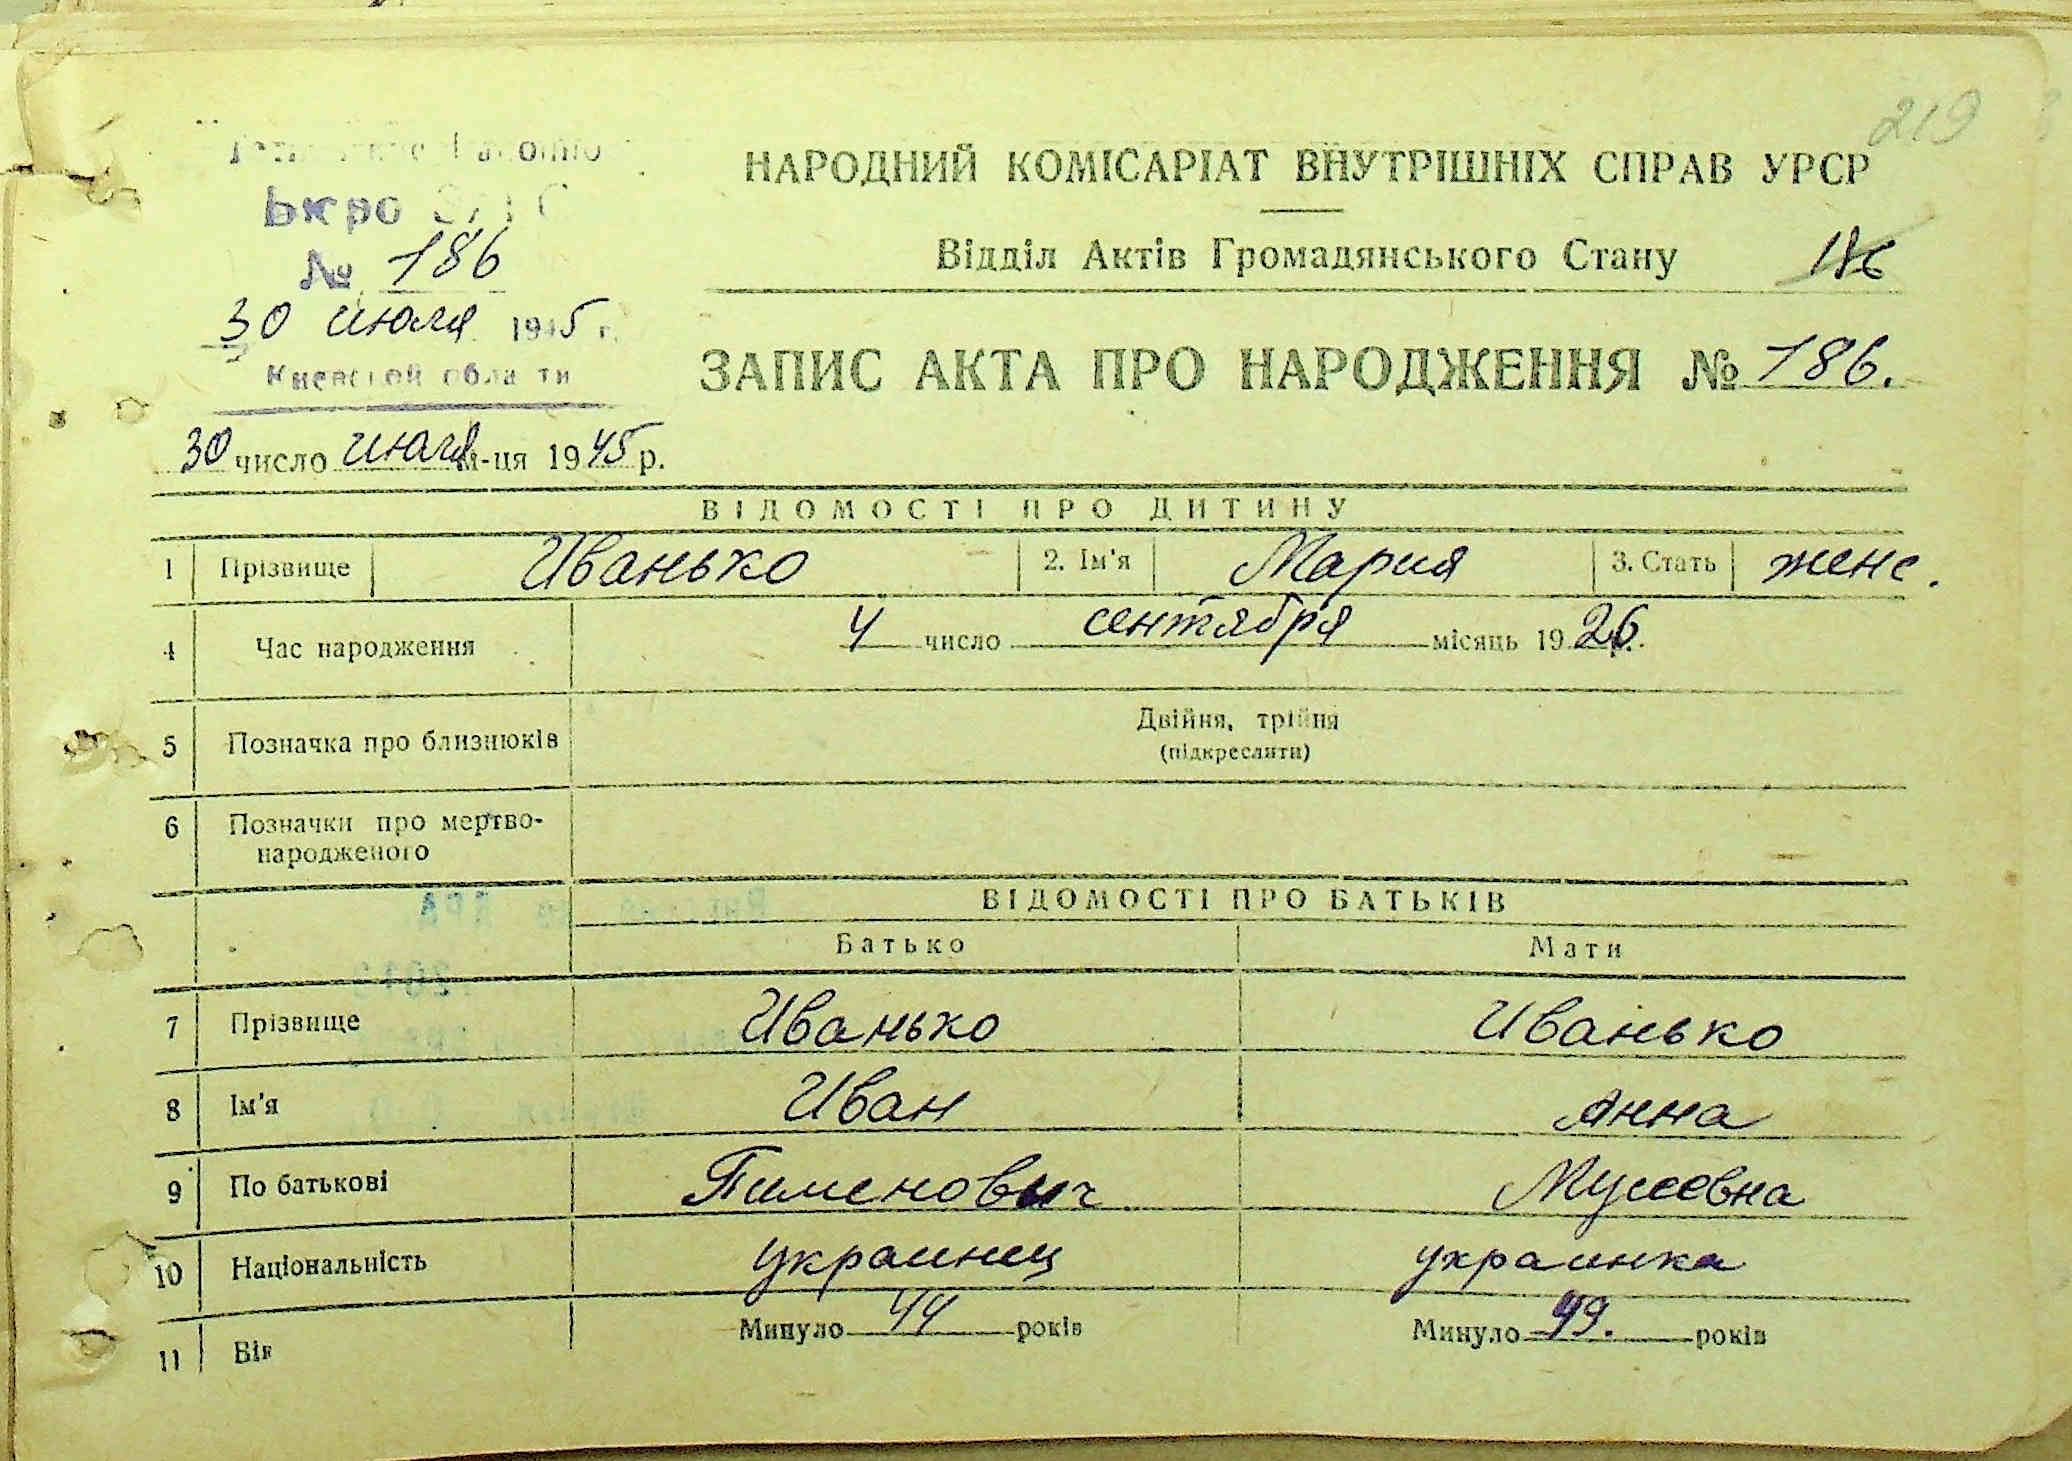 219
НАРОДНИЙ КОМІСАРІАТ ВНУТРІШНІХ СПРАВ УРСР
Бюро
№ 186
Відділ Актів Громадянського Стану
30 июля 1945 г.
Киевской области
ЗАПИС АКТА ПРО НАРОДЖЕННЯ № 186.
30 число июля м-ця 1945 р.
ВІДОМОСТІ ПРО ДИТИНУ
1 Прізвище Иванько 2. Ім'я Мария 3. Стать женс.
4 Час народження 4 число сентября місяць 1926 р.
5 Позначка про близнюків Двійня, трійня
(підкреслити)
6 Позначки про мертво-
народженого
ВІДОМОСТІ ПРО БАТЬКІВ
Батько Мати
7 Прізвище Иванько Иванько
8 Ім'я Иван Анна
9 По батькові Пименович Мусеевна
10 Національність украинец украинка
11 Вік Минуло 44 років Минуло 49. років